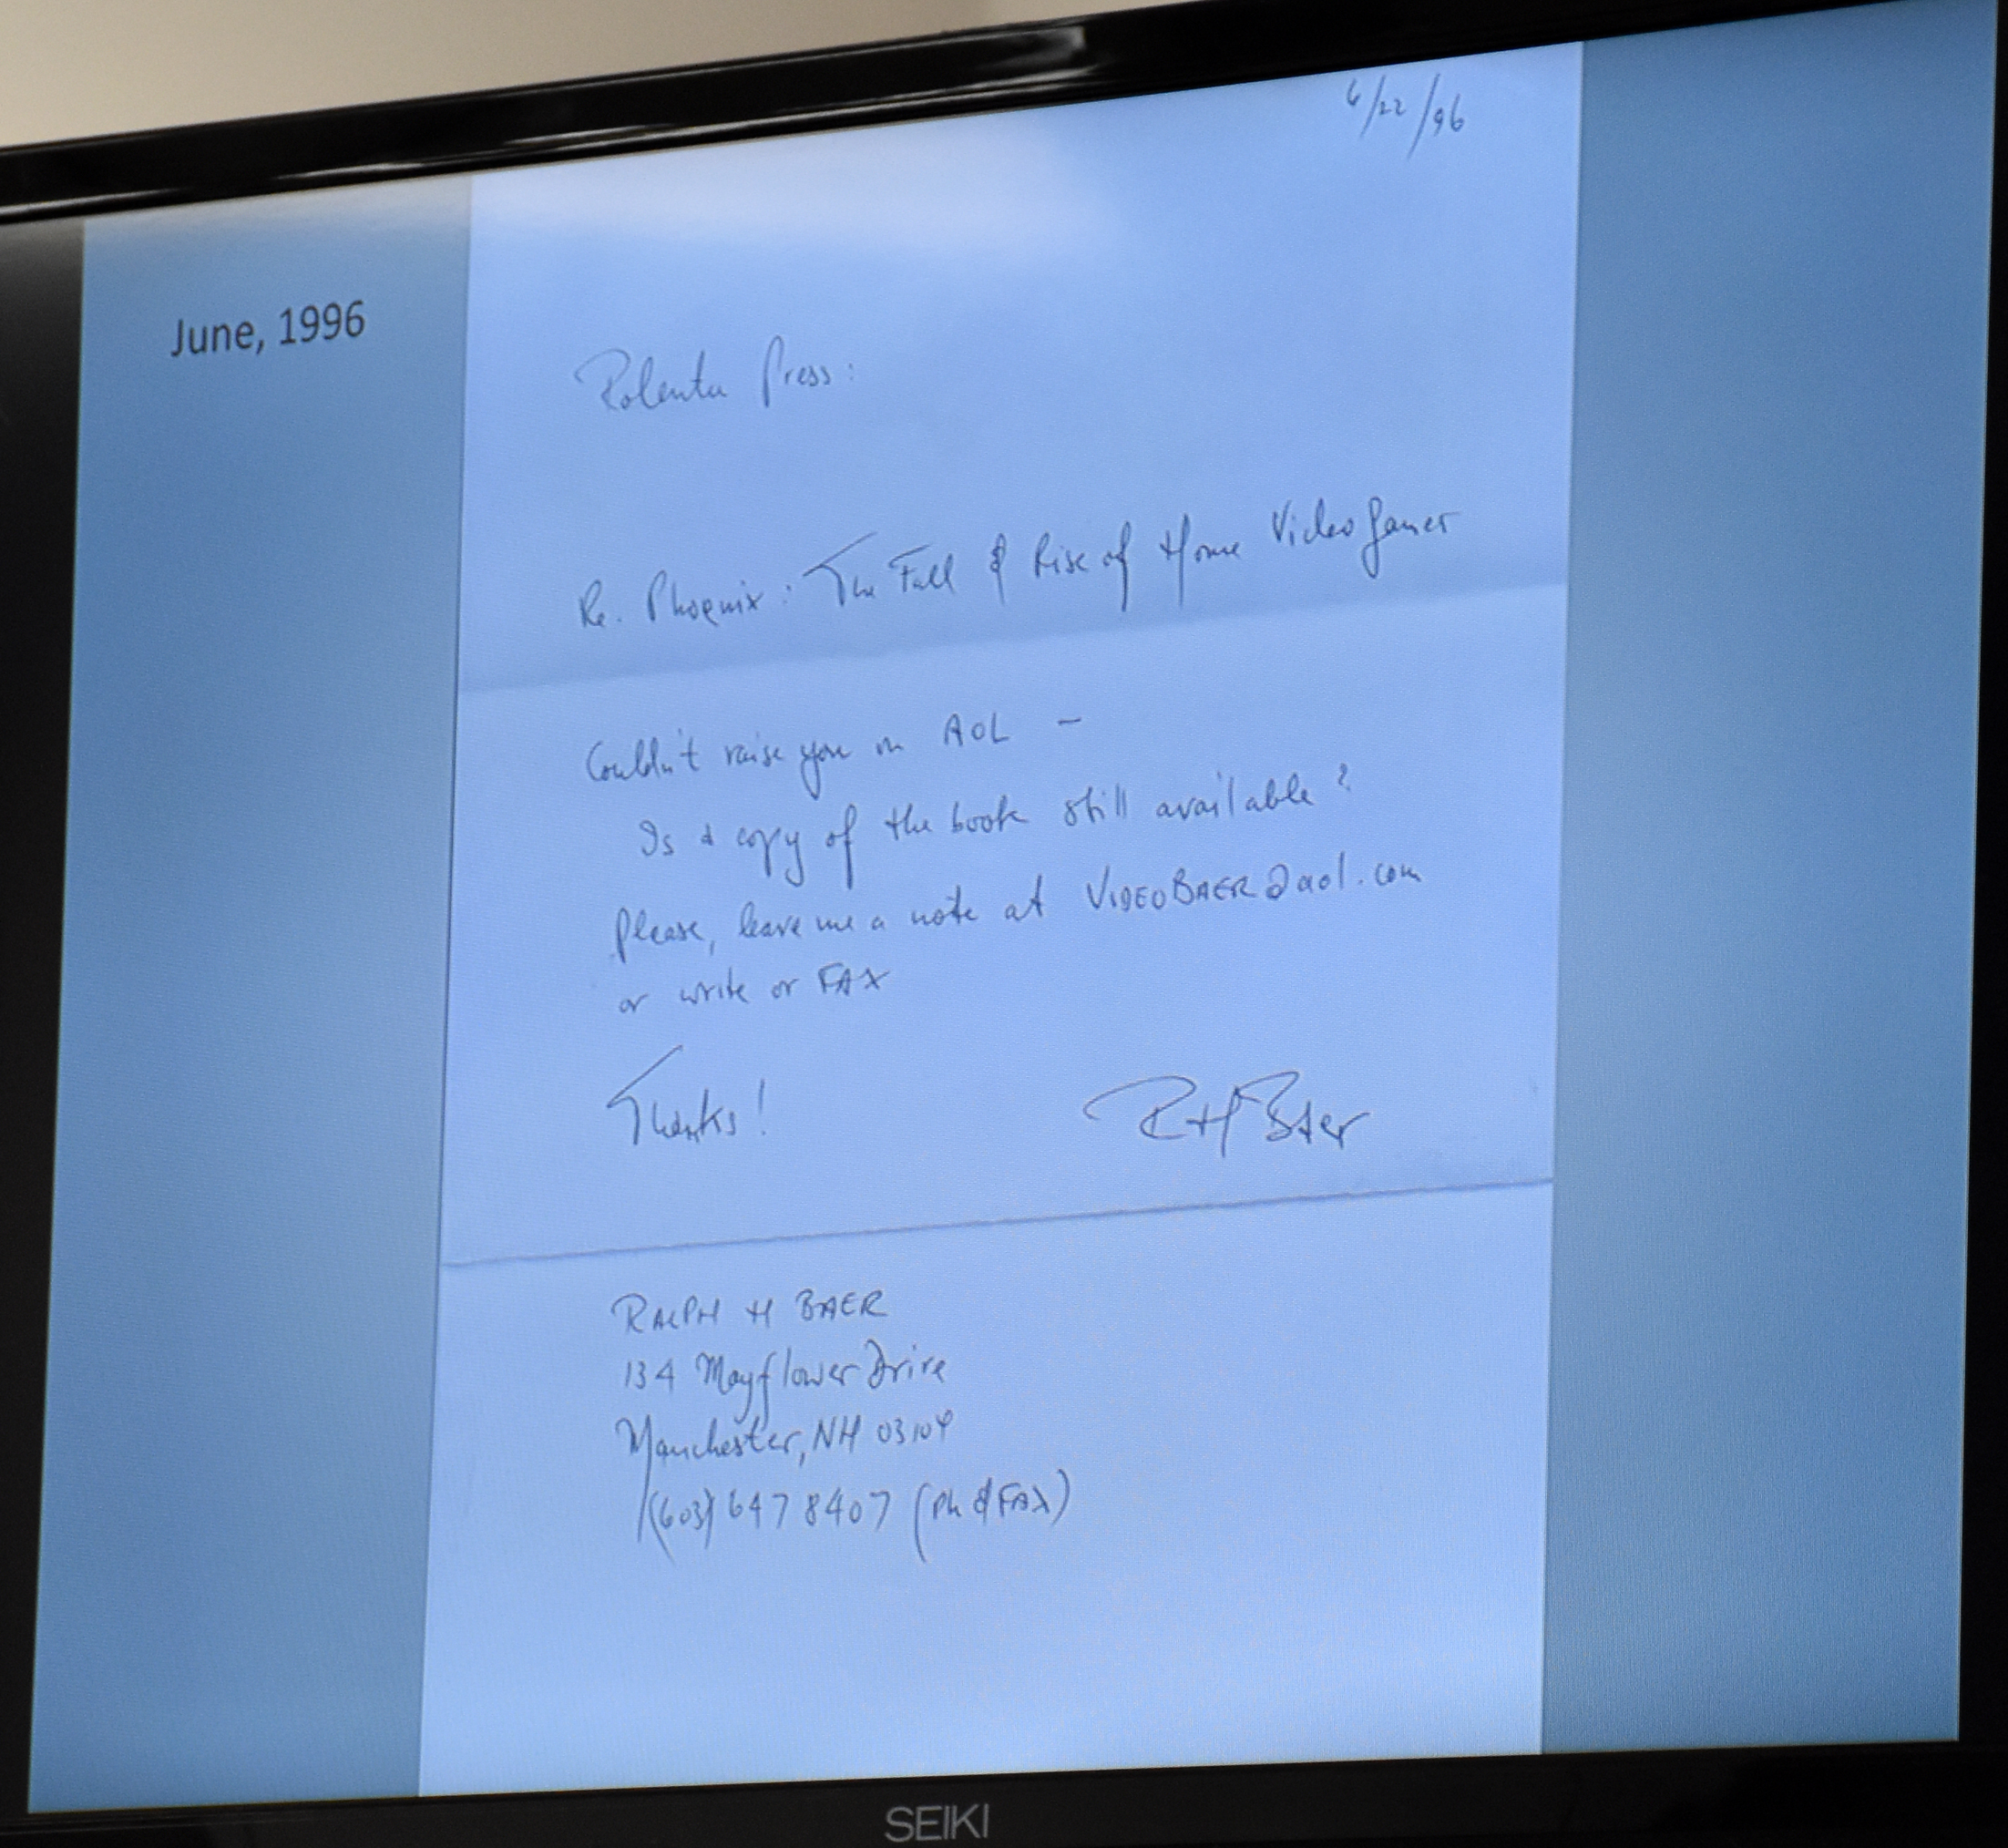 6/22/96
June, 1996
Rolenta Press:
Re. Phoenix: The Fall & Rise of Home Video Games
Couldn't raise you on AOL –
Is a copy of the book still available?
Please, leave me a note at VIDEOBAER@aol.com
or write or FAX
Thanks! RHBaer
RALPH H BAER
134 Mayflower Drive
Manchester, NH 03104
(603) 647 8407 (Ph & FAX)
SEIKI